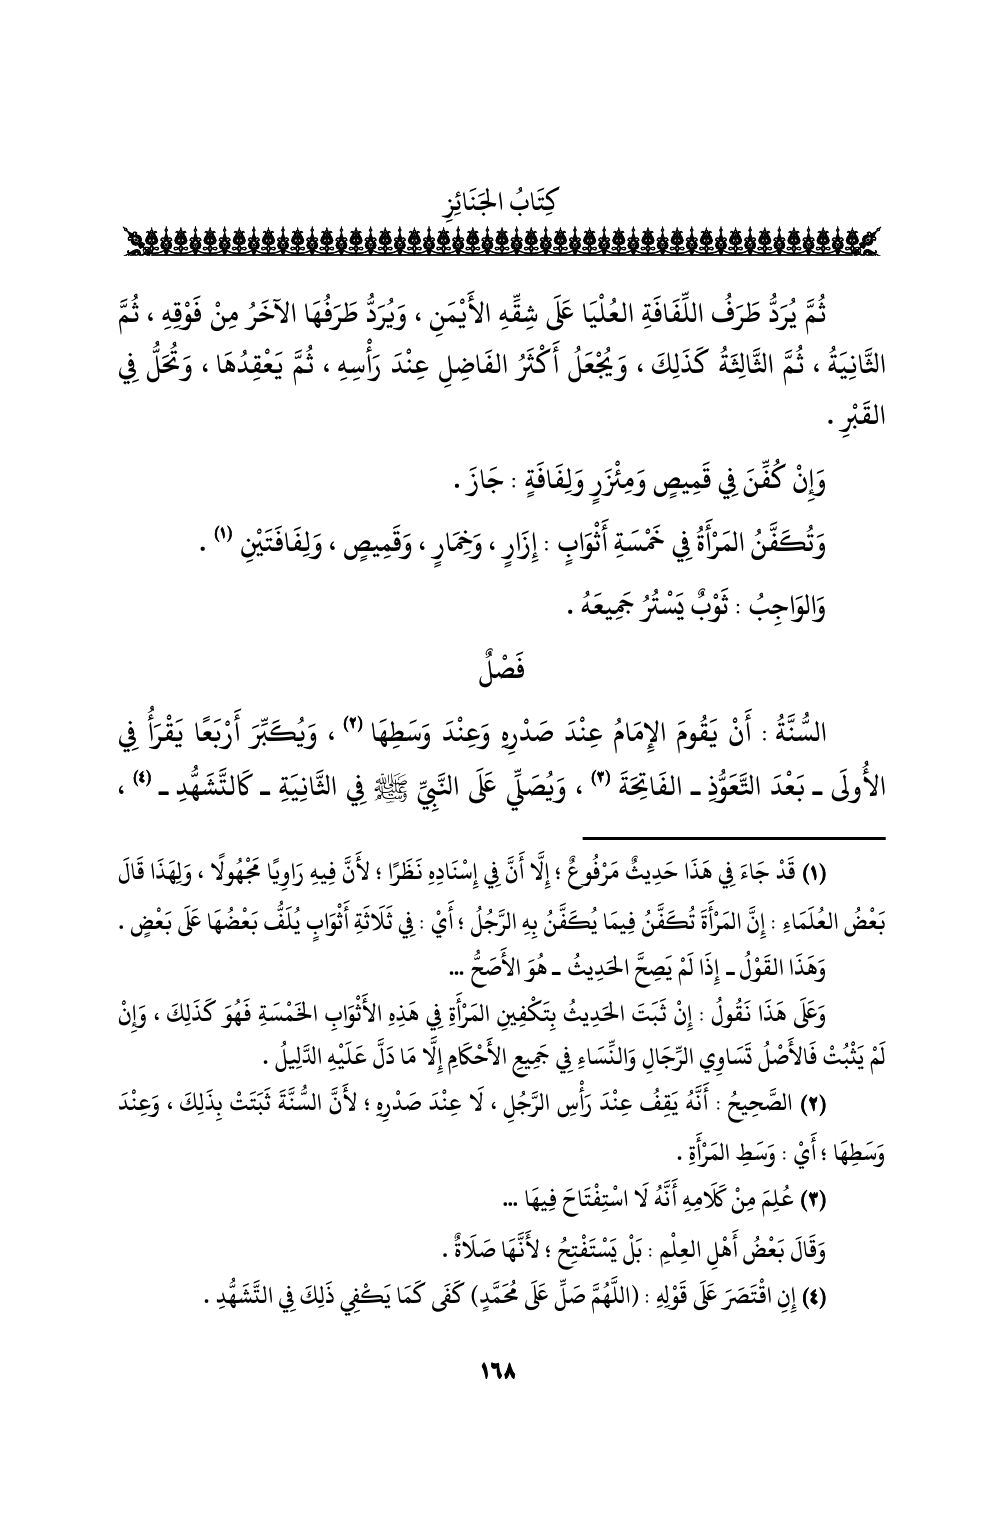 كِتَابُ الجَنَائِزِ
ثُمَّ يُرَدُّ طَرَفُ اللِّفَافَةِ العُلْيَا عَلَى شِقِّهِ الأَيْمَنِ ، وَيُرَدُّ طَرَفُهَا الآخَرُ مِنْ فَوْقِهِ ، ثُمَّ
الثَّانِيَةُ ، ثُمَّ الثَّالِثَةُ كَذَلِكَ ، وَيُجْعَلُ أَكْثَرُ الفَاضِلِ عِنْدَ رَأْسِهِ ، ثُمَّ يَعْقِدُهَا ، وَتُحَلُّ فِي
القَبْرِ .
وَإِنْ كُفِّنَ فِي قَمِيصٍ وَمِئْزَرٍ وَلِفَافَةٍ : جَازَ .
وَتُكَفَّنُ المَرْأَةُ فِي خَمْسَةِ أَثْوَابٍ : إِزَارٍ ، وَخِمَارٍ ، وَقَمِيصٍ ، وَلِفَافَتَيْنِ (١) .
وَالوَاجِبُ : ثَوْبٌ يَسْتُرُ جَمِيعَهُ .
فَصْلٌ
السُّنَّةُ : أَنْ يَقُومَ الإِمَامُ عِنْدَ صَدْرِهِ وَعِنْدَ وَسَطِهَا (٢) ، وَيُكَبِّرَ أَرْبَعًا يَقْرَأُ فِي
الأُولَى ـ بَعْدَ التَّعَوُّذِ ـ الفَاتِحَةَ (٣) ، وَيُصَلِّي عَلَى النَّبِيِّ ﷺ فِي الثَّانِيَةِ ـ كَالتَّشَهُّدِ ـ (٤) ،
(١) قَدْ جَاءَ فِي هَذَا حَدِيثٌ مَرْفُوعٌ ؛ إِلَّا أَنَّ فِي إِسْنَادِهِ نَظَرًا ؛ لأَنَّ فِيهِ رَاوِيًا مَجْهُولًا ، وَلِهَذَا قَالَ
بَعْضُ العُلَمَاءِ : إِنَّ المَرْأَةَ تُكَفَّنُ فِيمَا يُكَفَّنُ بِهِ الرَّجُلُ ؛ أَيْ : فِي ثَلَاثَةِ أَثْوَابٍ يُلَفُّ بَعْضُهَا عَلَى بَعْضٍ .
وَهَذَا القَوْلُ ـ إِذَا لَمْ يَصِحَّ الحَدِيثُ ـ هُوَ الأَصَحُّ ...
وَعَلَى هَذَا نَقُولُ : إِنْ ثَبَتَ الحَدِيثُ بِتَكْفِينِ المَرْأَةِ فِي هَذِهِ الأَثْوَابِ الخَمْسَةِ فَهُوَ كَذَلِكَ ، وَإِنْ
لَمْ يَثْبُتْ فَالأَصْلُ تَسَاوِي الرِّجَالِ وَالنِّسَاءِ فِي جَمِيعِ الأَحْكَامِ إِلَّا مَا دَلَّ عَلَيْهِ الدَّلِيلُ .
(٢) الصَّحِيحُ : أَنَّهُ يَقِفُ عِنْدَ رَأْسِ الرَّجُلِ ، لَا عِنْدَ صَدْرِهِ ؛ لأَنَّ السُّنَّةَ ثَبَتَتْ بِذَلِكَ ، وَعِنْدَ
وَسَطِهَا ؛ أَيْ : وَسَطِ المَرْأَةِ .
(٣) عُلِمَ مِنْ كَلَامِهِ أَنَّهُ لَا اسْتِفْتَاحَ فِيهَا ...
وَقَالَ بَعْضُ أَهْلِ العِلْمِ : بَلْ يَسْتَفْتِحُ ؛ لأَنَّهَا صَلَاةٌ .
(٤) إِنِ اقْتَصَرَ عَلَى قَوْلِهِ : (اللَّهُمَّ صَلِّ عَلَى مُحَمَّدٍ) كَفَى كَمَا يَكْفِي ذَلِكَ فِي التَّشَهُّدِ .
١٦٨